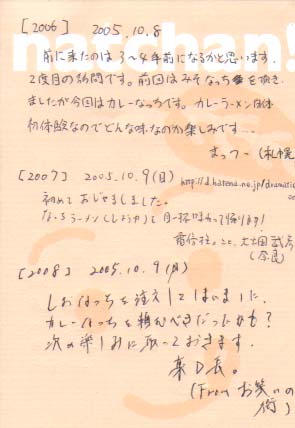 natchan!
[2006] 2005.10.8
前に来たのは3〜4年前になるかと思います。
2度目の訪問です。前回はみそなっちを頂き
ましたが今回はカレーなっちです。カレーラーメン自体
初体験なのでどんな味なのか楽しみです…
まっつー(札幌
[2007] 2005.10.9(日) http://d.hatena.ne.jp/dramatic
初めておじゃましました。
ラーメン(しょうゆ)を目一杯味わって帰ります!
こと、
(奈良)
[2008] 2005.10.9(月)
しおなっちを注文してしまいました。
カレーなっちを頼むべきだったかも?
次の楽しみに取っておきます。
(From お笑いの
街)